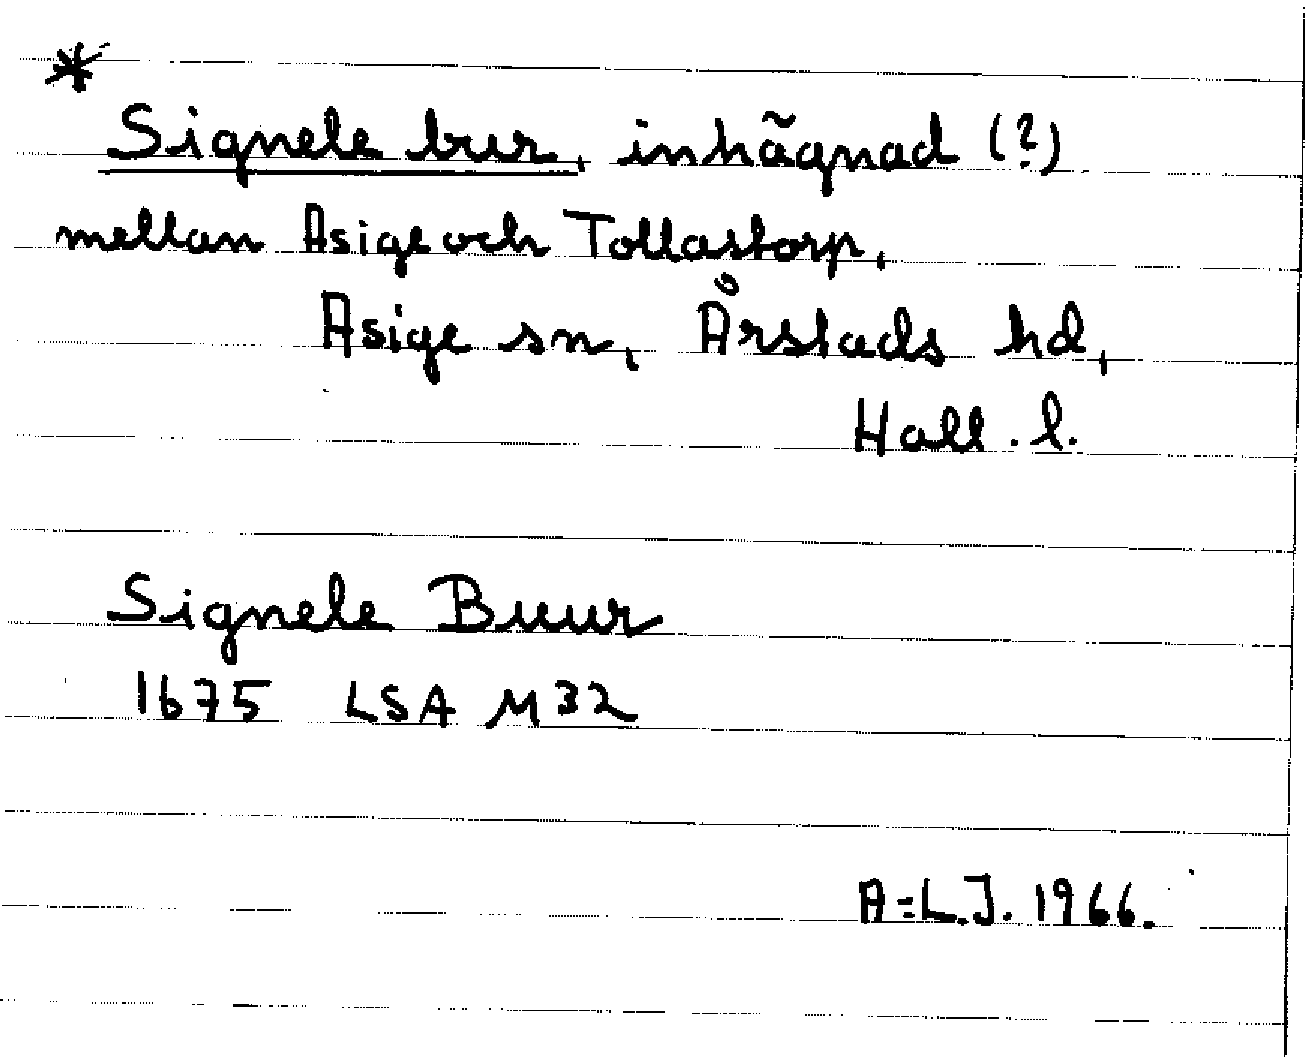 *
Signele bur, inhägnad (?)
mellan Asige och Tollastorp,
Asige sn, Årstads hd,
Hall. l.
Signele Buur
1675 LSA M32
A-L.J. 1966.